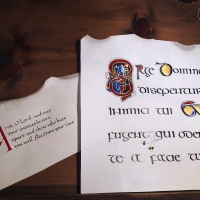 Arise, O Lord, and may
your enemies be torn
apart and those who hate
you will flee from your face
Domine
inimici tui Et
fugent qui oder
te a facie tu